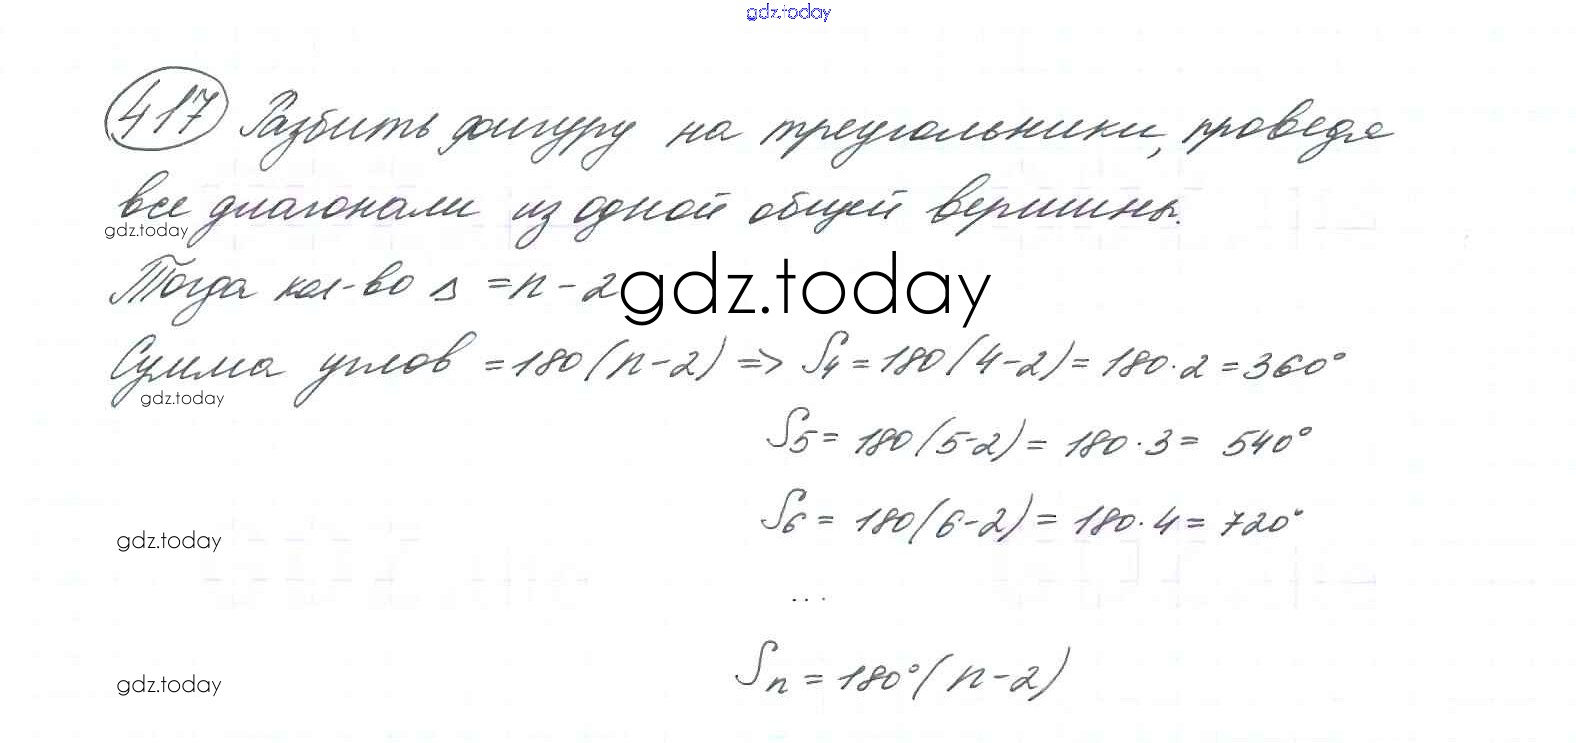 gdz.today
417 Разбить фигуру на треугольники, проведя
все диагонали из одной общей вершины.
gdz.today
Тогда кол-во Δ = n - 2
gdz.today
Сумма углов = 180(n-2) => S₄ = 180(4-2) = 180·2 = 360°
gdz.today
S₅ = 180(5-2) = 180·3 = 540°
S₆ = 180(6-2) = 180·4 = 720°
gdz.today
...
Sₙ = 180°(n-2)
gdz.today